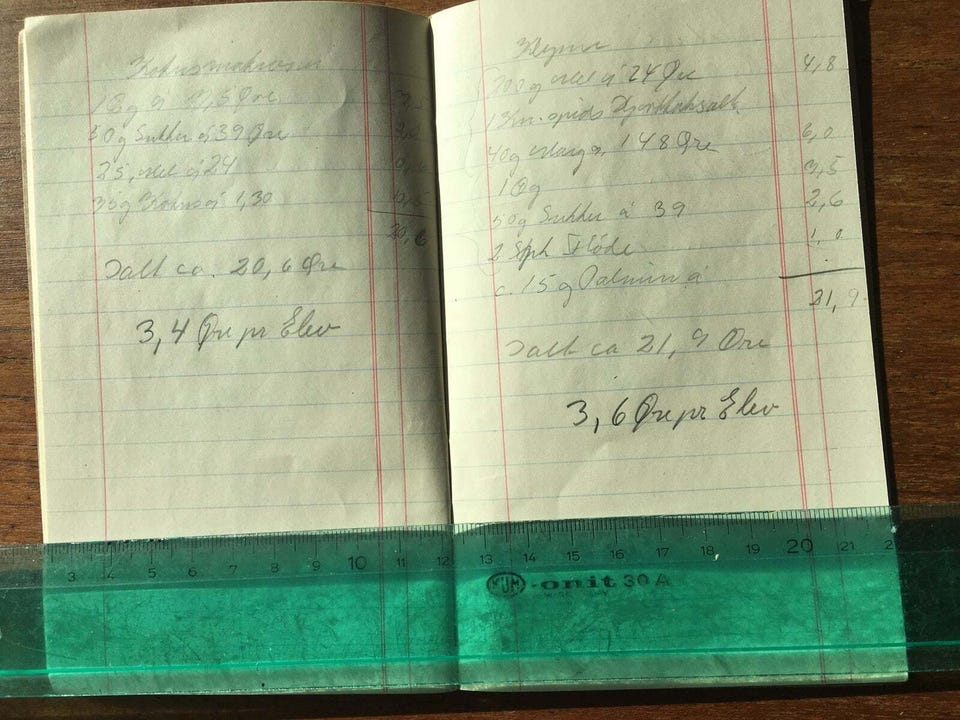 Kokusmakroner
1 Æg á Øre
50 g Sukker á 39 Øre
25, Mel á 24
30g Kokus á 1,30
20,6
Ialt ca. 20,6 Øre
3,4 Øre pr Elev
200g Mel á 24 Øre 4,8
1 Kn.spids Hjortetaksalt
40g Marg. á 148 Øre 6,0
1 Æg 3,5
50g Sukker á 39 2,6
2 Spsk Fløde 1,0
c. 15 g Palmin á
21,9
Ialt ca 21,9 Øre
3,6 Øre pr Elev
3 4 5 6 7 8 9 10 11 12 13 14 15 16 17 18 19 20 21 2
KUM -onit 30A